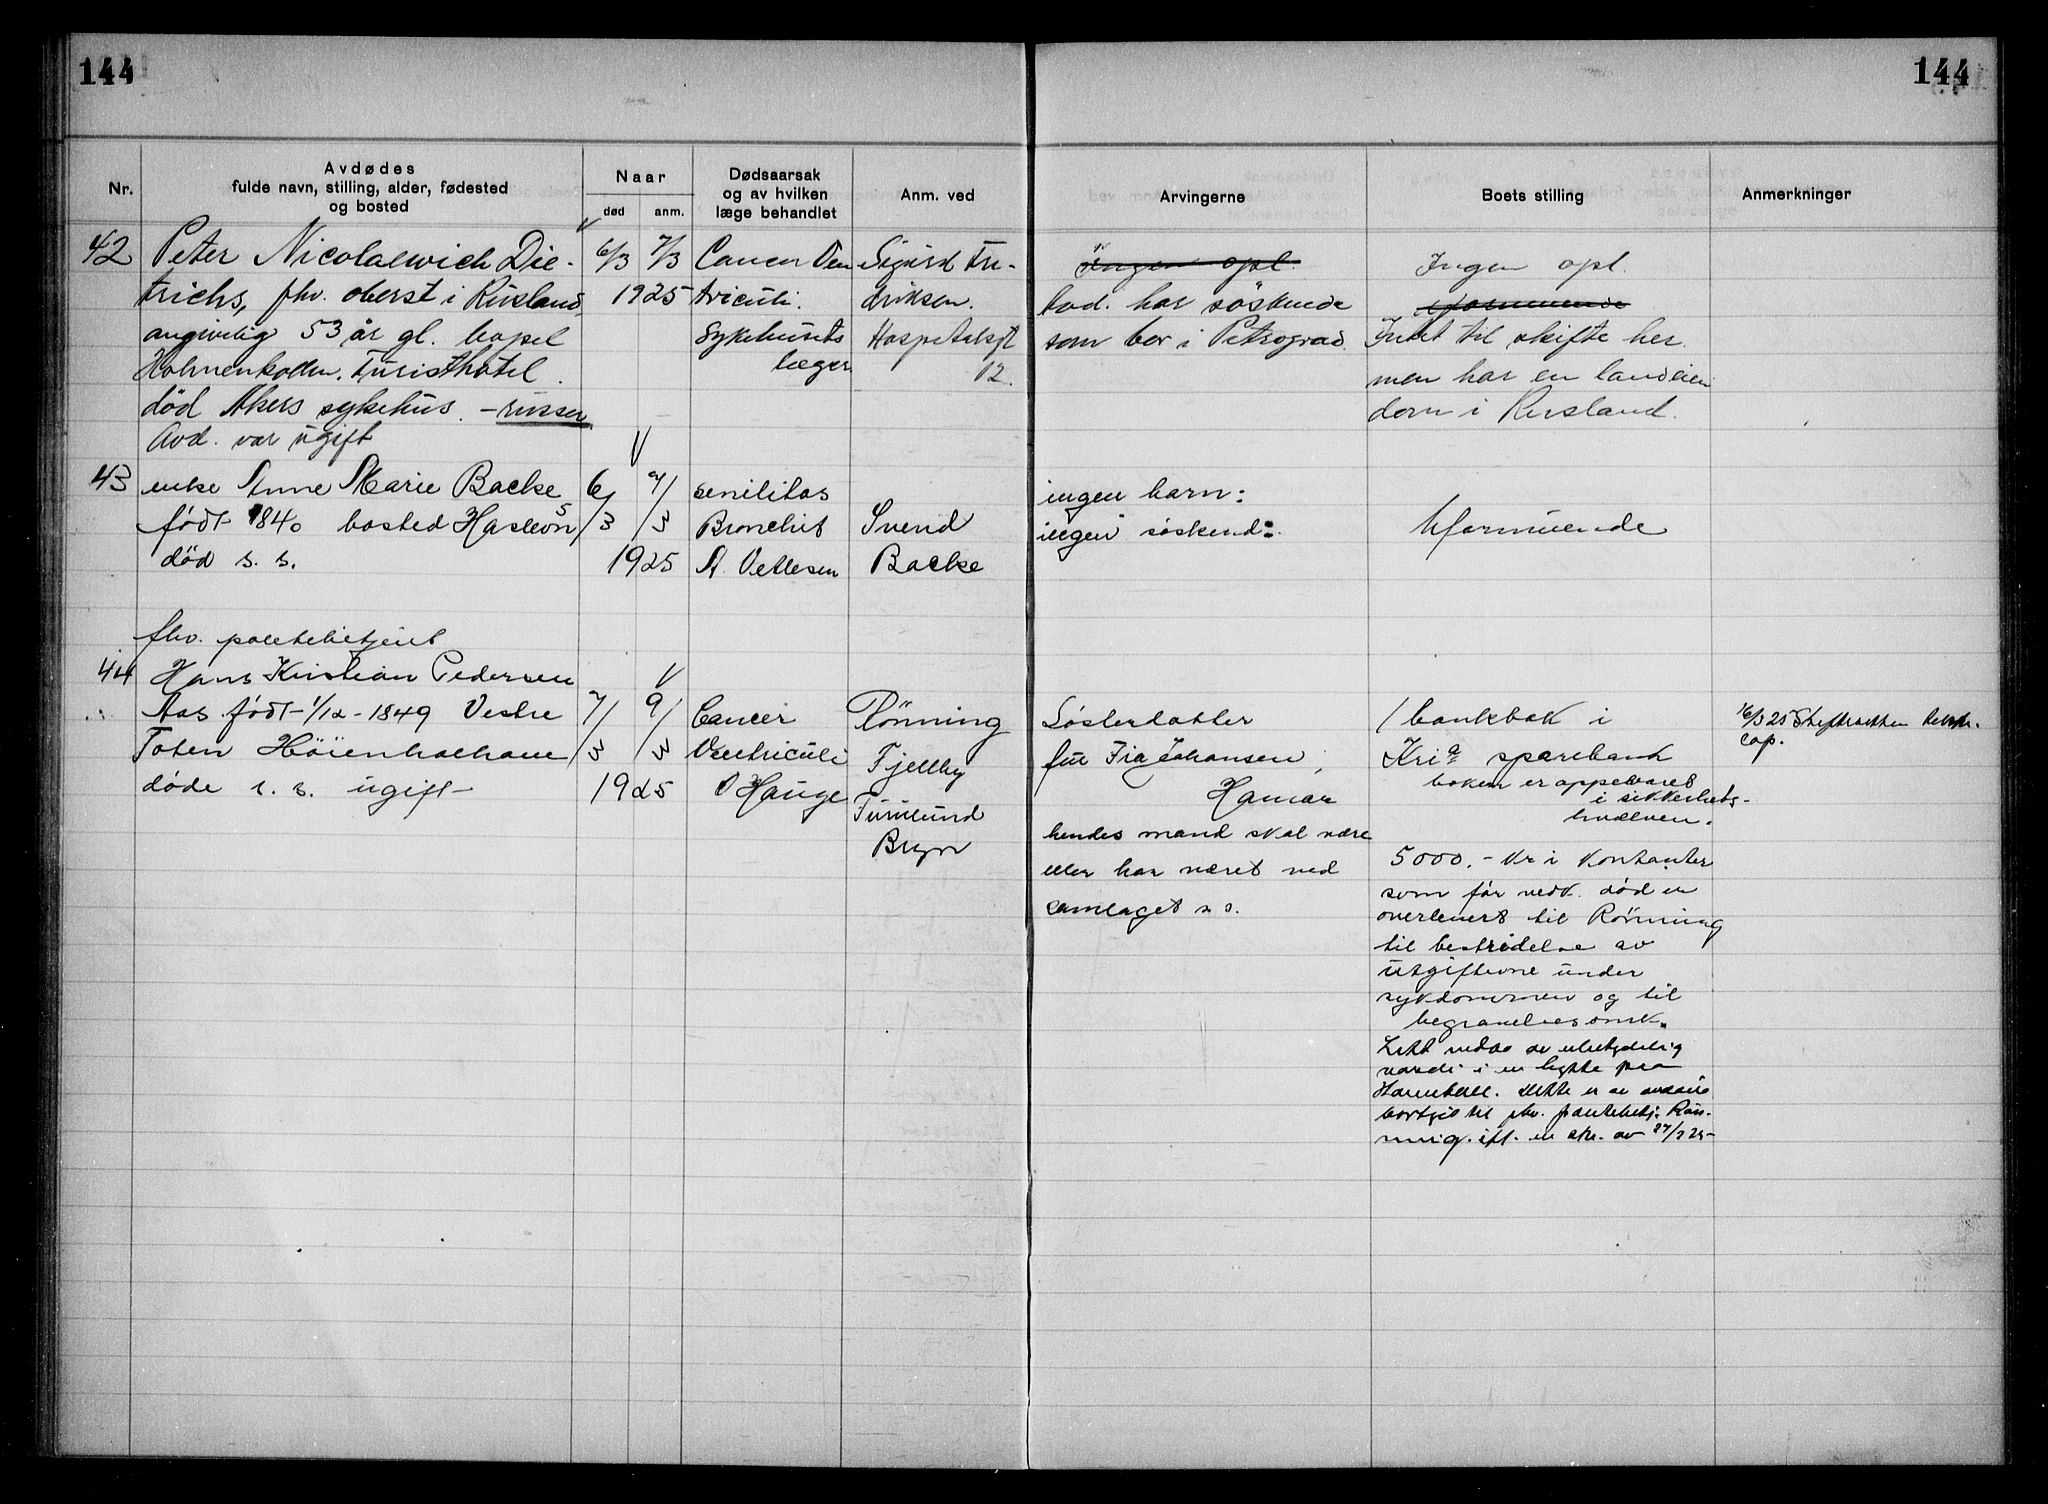 144
144
Nr.
Avdødes
fulde navn, stilling, alder, fødested
og bosted
Naar
død
anm.
Dødsaarsak
og av hvilken
læge behandlet
Anm. ved
Arvingerne
Boets stilling
Anmerkninger
42
Peter Nicolaewich Die-
trichs, fhv. oberst i Rusland,
angivelig 53 år gl. bopel
Holmenkollen. Turisthotel.
død Akers sykehus. - russer
Avd. var ugift
6/3 7/3
1925
Cancer Ven
triculi.
Sykehusets
læger
Sigurd Fre-
driksen.
Hospitalsgt
12.
Ingen opl.
avd. har söskende
som bor i Petrograd.
Ingen opl.
Uformuende
Intet til skifte her.
men har en landeien
dom i Rusland.
43
enke Anne Marie Backe
født 1840 bosted Haslevn 5
død s. s.
6/3 7/3
1925
senilitas
Bronchit
A. Vetlesen
Svend
Backe
ingen barn:
ingen søskend:
Uformuende
fhv. politibetjent
44
Hans Kristian Pedersen
Aas født 1/12 - 1849 Vestre
Toten
døde s. s. ugift
7/3 9/3
1925
Cancer
Ventriculi
O Hauge
Rönning
Fjellby
Bryn
Søsterdatter
fru Johansen,
Hamar
hendes mand skal være
eller har været ved
samlaget s. s.
1 bankbok i
Kri a sparebank
boken er oppbevaret
i sikkerhets-
hvælven.
5000.- kr i kontanter
som før vedk. død er
overlevert til Rönning
til bestridelse av
utgifterne under
sykdommen og til
begravelsesomk.
Litt indbo av ubetydelig
værdi i en hytte paa
Dette er av avdøde
bortgit til fhv. politibetj. Rön-
ning. ifl. en skr. av 27/2 25-
16/3 25 Skifteretten